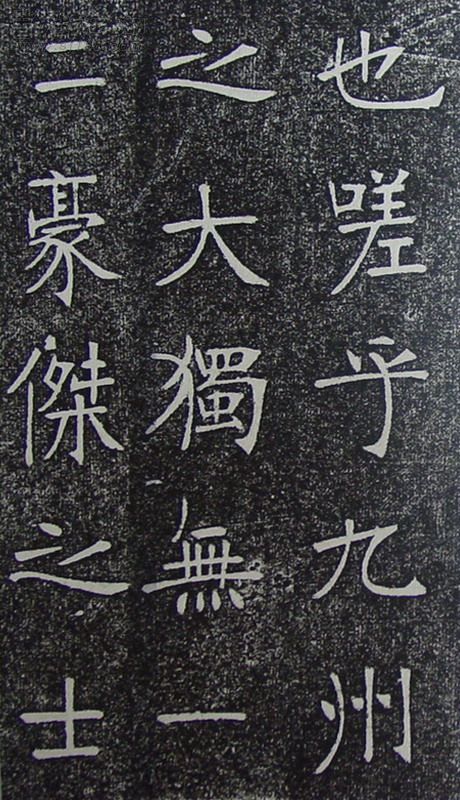 也嗟乎九州
之大獨無一
二豪傑之士